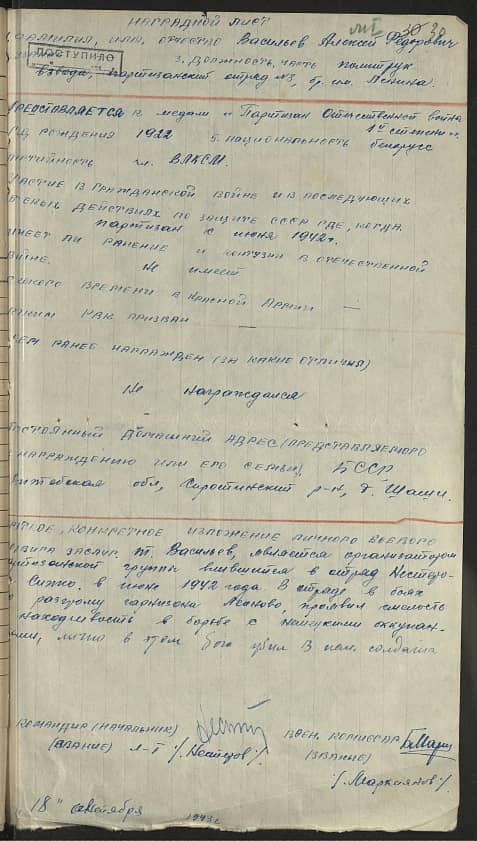 НАГРАДНОЙ ЛИСТ
30 30
ФАМИЛИЯ, ИМЯ, ОТЧЕСТВО Васильев Алексей Федорович
ПОСТУПИЛО
3. ДОЛЖНОСТЬ, ЧАСТЬ политрук
взвода, партизанский отряд №3, бр. им. Ленина.
ПРЕДСТАВЛЯЕТСЯ к медали "Партизан Отечественной войны
1й степени".
РОЖДЕНИЯ 1922 5. НАЦИОНАЛЬНОСТЬ белорусс
ПАРТИЙНОСТЬ чл. ВЛКСМ.
УЧАСТИЕ В ГРАЖДАНСКОЙ ВОЙНЕ И В ПОСЛЕДУЮЩИХ
БОЕВЫХ ДЕЙСТВИЯХ ПО ЗАЩИТЕ СССР ГДЕ, КОГДА
партизан с июня 1942 г.
ИМЕЕТ ЛИ РАНЕНИЕ И КОНТУЗИИ В ОТЕЧЕСТВЕННОЙ
ВОЙНЕ. Не имеет
С КАКОГО ВРЕМЕНИ В КРАСНОЙ АРМИИ —
КАКИМ РВК ПРИЗВАН —
ЧЕМ РАНЕЕ НАГРАЖДЕН (ЗА КАКИЕ ОТЛИЧИЯ)
Не награждался
ПОСТОЯННЫЙ ДОМАШНИЙ АДРЕС (ПРЕДСТАВЛЯЕМОГО
К НАГРАЖДЕНИЮ ИЛИ ЕГО СЕМЬИ) БССР
Витебская обл, Сиротинский р-н, д.
КРАТКОЕ, КОНКРЕТНОЕ ИЗЛОЖЕНИЕ ЛИЧНОГО БОЕВОГО
ПОДВИГА ЗАСЛУГ. т. Васильев, является организатором
партизанской группы влившейся в отряд
в июне 1942 года. В отряде в боях
по разгрому гарнизона проявил смелость
находчивость в борьбе с немецкими оккупан-
тами, лично в этом бою убил 3 нем. солдата
КОМАНДИР (НАЧАЛЬНИК) ВОЕН. КОМИССАР
(ЗВАНИЕ) л-т (ЗВАНИЕ)
/Маркиянов/
"18" сентября 1943 г.